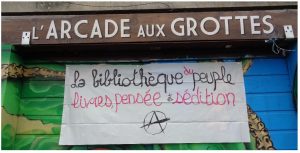 L'ARCADE AUX GROTTES
La bibliothèque du peuple
livres, pensée & sédition